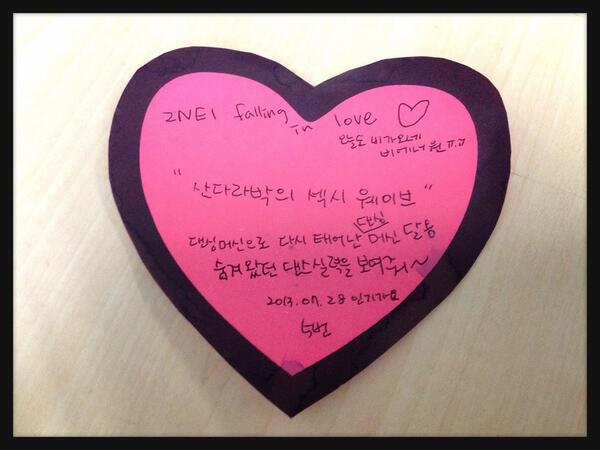 2NE1 falling in love ♡
오늘도 비가오네
비에너원 ㅠ.ㅠ
"산다라박의 섹시 웨이브"
댄싱머신으로 다시 태어난 댄싱 머신 달옹
숨겨왔던 댄스실력을 보여줘~
2013.07.28 인기가요